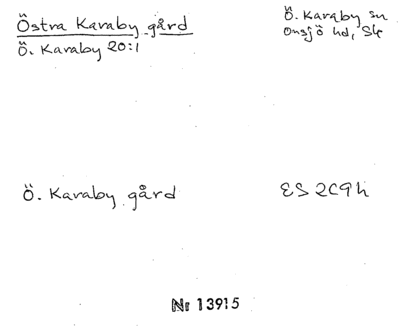 Östra Karaby gård
Ö. Karaby 20:1
Ö. Karaby sn
Onsjö hd, Sk
Ö. Karaby gård
ES 2C9h
Nr 13915